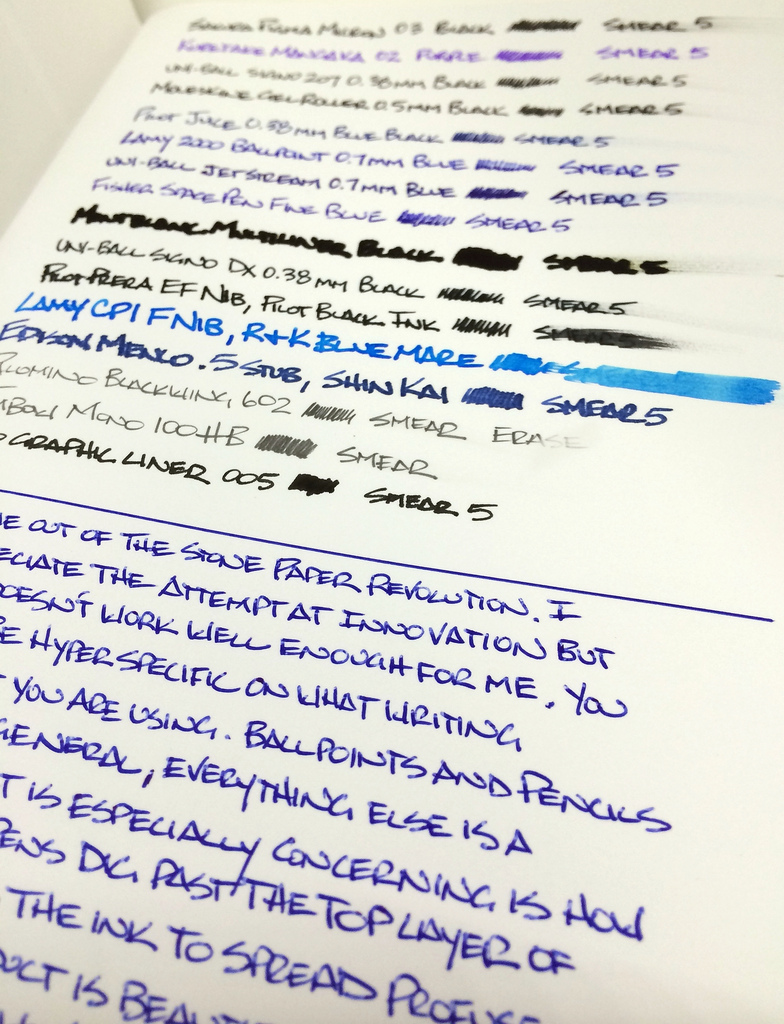 Sakura Pigma Micron 03 Black SMEAR 5
Kuretake Mangaka 02 Purple SMEAR 5
Uni-ball Signo 207 0.38mm Black SMEAR 5
Moleskine Gel Roller 0.5mm Black SMEAR 5
Pilot Juice 0.38mm Blue Black SMEAR 5
Lamy 2000 Ballpoint 0.7mm Blue SMEAR 5
Uni-ball Jetstream 0.7mm Blue SMEAR 5
Fisher Space Pen Fine Blue SMEAR 5
Montblanc Black SMEAR 5
Uni-ball Signo DX 0.38mm Black SMEAR 5
Pilot Prera EF Nib, Pilot Black Ink
Lamy CP1 F Nib, R+K Blue Mare
Edison Menlo .5 Stub, Shin Kai SMEAR 5
Palomino Blackwing 602 SMEAR ERASE
Mono 100 HB SMEAR
Graphic Liner 005 SMEAR 5
OUT OF THE STONE PAPER REVOLUTION. I
ECIATE THE ATTEMPT AT INNOVATION BUT
DOESN'T WORK WELL ENOUGH FOR ME. YOU
E HYPER SPECIFIC ON WHAT WRITING
YOU ARE USING. BALLPOINTS AND PENCILS
GENERAL, EVERYTHING ELSE IS A
T IS ESPECIALLY CONCERNING IS HOW
PENS DIG PAST THE TOP LAYER OF
THE INK TO SPREAD PROFUSE
DUCT IS BEAU